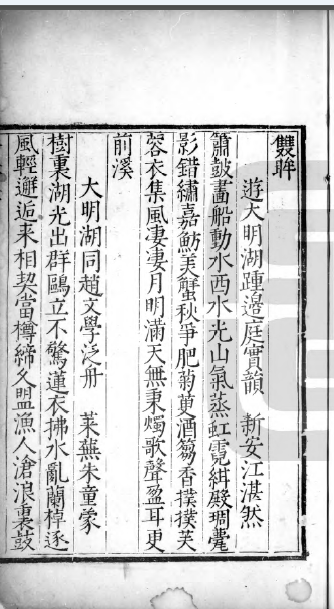 雙眸
遊大明湖踵邊庭實韻　新安江湛然
簫鼓畫船動水西水光山氣蒸虹霓緝殿琱甍
影錯繡嘉魴美蟹秋爭肥菊萸酒芻香撲撲芙
蓉衣集風凄凄月明滿天無秉燭歌聲盈耳更
前溪
大明湖同趙文學泛舟　萊蕪朱童蒙
樹裏湖光出群鷗立不驚蓮衣拂水亂蘭棹逐
風輕邂逅来相契當樽締久盟漁人滄浪裏鼓